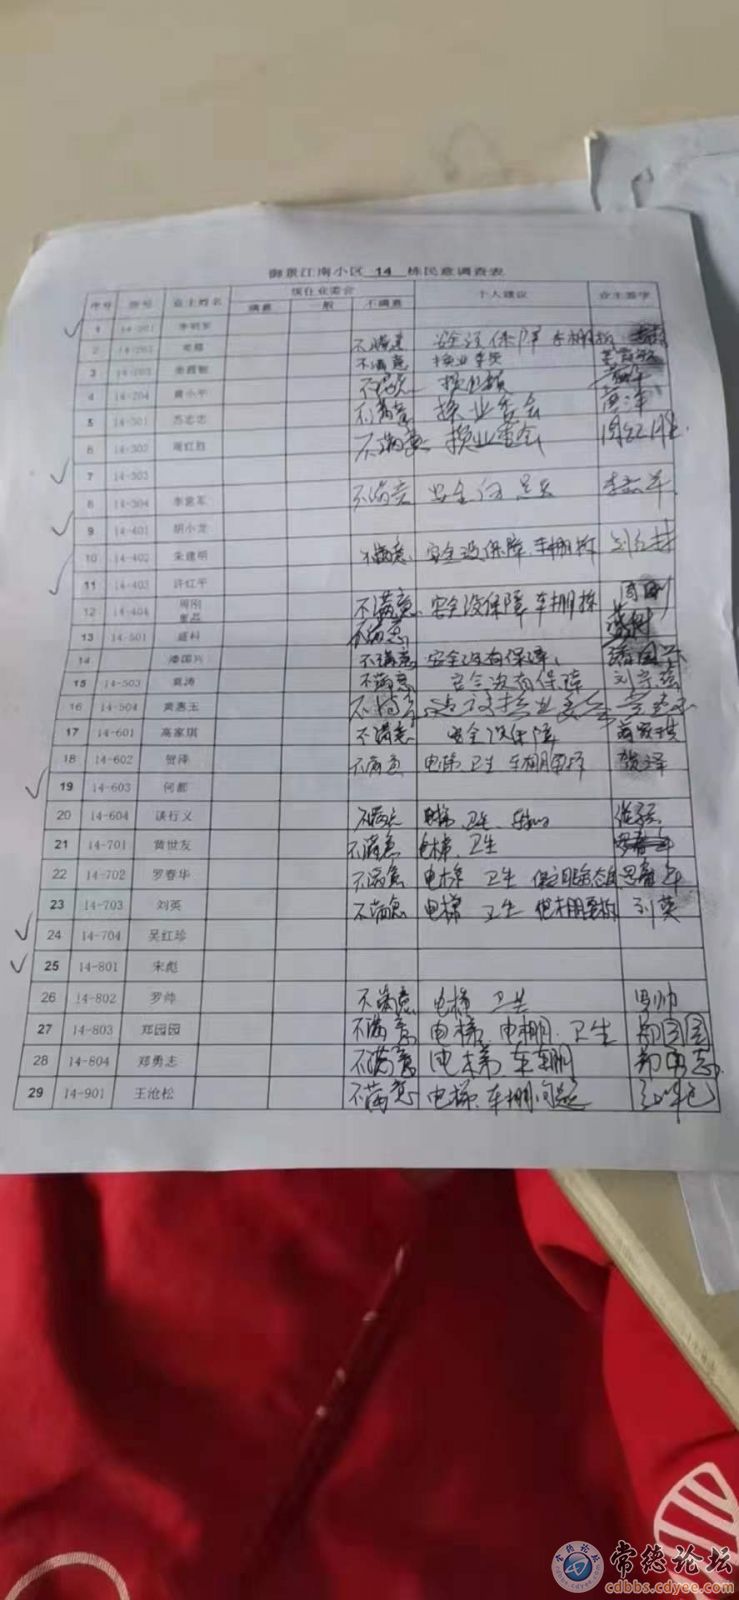 御景江南小区 14 栋民意调查表
序号 房号 业主姓名 现任业委会 个人建议 业主签字
满意 一般 不满意
1 14-201
2 14-202 不满意 安全没保障 车棚拆
3 14-203 不满意 换业委会
4 14-204 黄小平 不满意
5 14-301 苏志忠 不满意 换业委会
6 14-302 周红胜 不满意 换业委会 周红胜
7 14-303
8 14-304 李常军 不满意 安全
9 14-401 胡小龙
10 14-402 朱建明 不满意 安全没保障 车棚拆
11 14-403 许红平
12 14-404 周刚 不满意 安全没保障 车棚拆 周刚
13 14-501 盛科 不满意
14 潘国兴 不满意 安全没有保障、 潘国兴
15 14-503 莫涛 不满意 安全没有保障
16 14-504 黄惠玉 不满意 换业委会
17 14-601 高家琪 不满意 安全没保障 高家琪
18 14-602 贺泽 不满意 电梯 卫生 车棚要拆 贺泽
19 14-603 何都
20 14-604 谈行义 不满意 电梯 卫生
21 14-701 黄世友 不满意 电梯、卫生
22 14-702 罗春华 不满意 电梯 卫生
23 14-703 刘英 不满意 电梯 卫生 刘英
24 14-704 吴红珍
25 14-801 宋彪
26 14-802 罗帅 不满意 电梯 卫生 罗帅
27 14-803 郑园园 不满意 电梯、电棚、卫生 郑园园
28 14-804 郑勇志 不满意 电梯 车棚 郑勇志
29 14-901 王沧松 不满意 电梯、车棚问题
常德论坛
cdbbs.cdyee.com